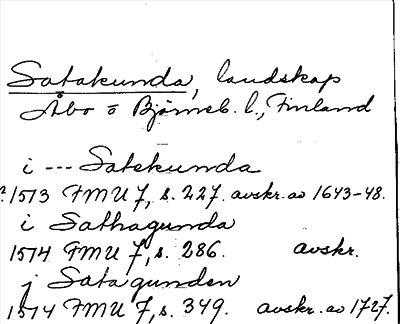 Satakunda, landskap
Åbo o Björneb. l., Finland
i --- Satekunda
?1513 FMU 7, s. 227. avskr. av 1643-48.
i Sathagunda
1514 FMU 7, s. 286. avskr.
j Satagunden
1514 FMU 7, s. 349. avskr. av 1727.